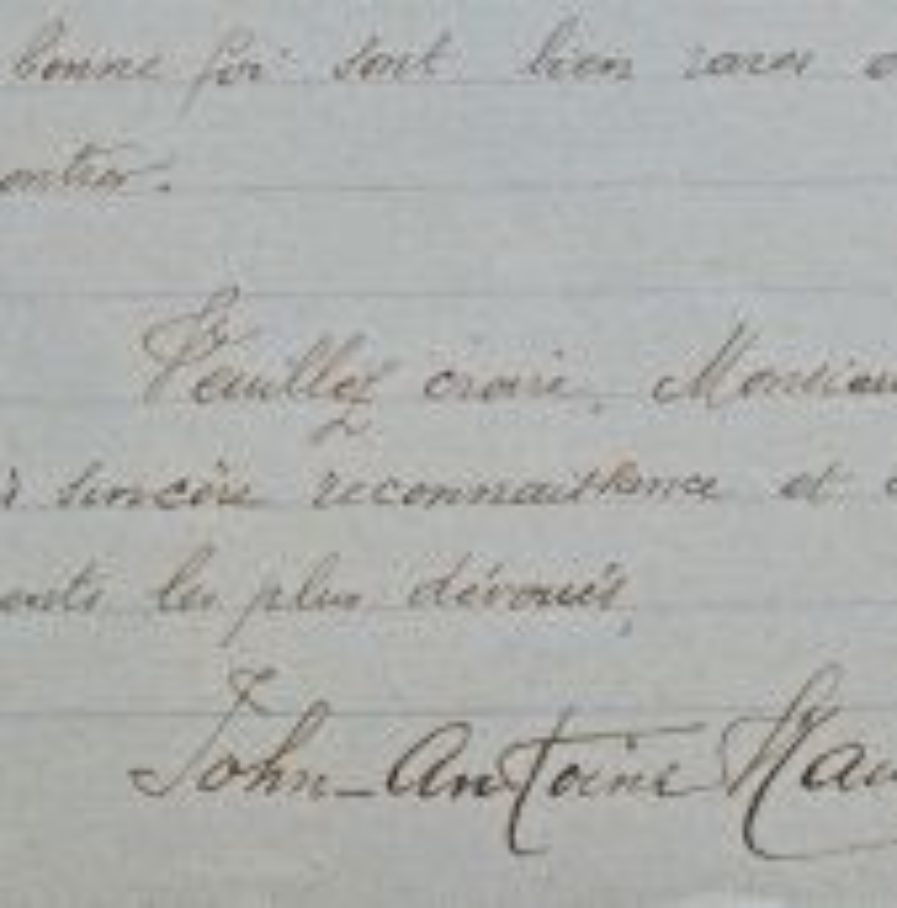 bonne foi sont bien rares
Veuillez croire, Monsieur
sincère reconnaissance et
les plus dévoués,
John-Antoine Nau